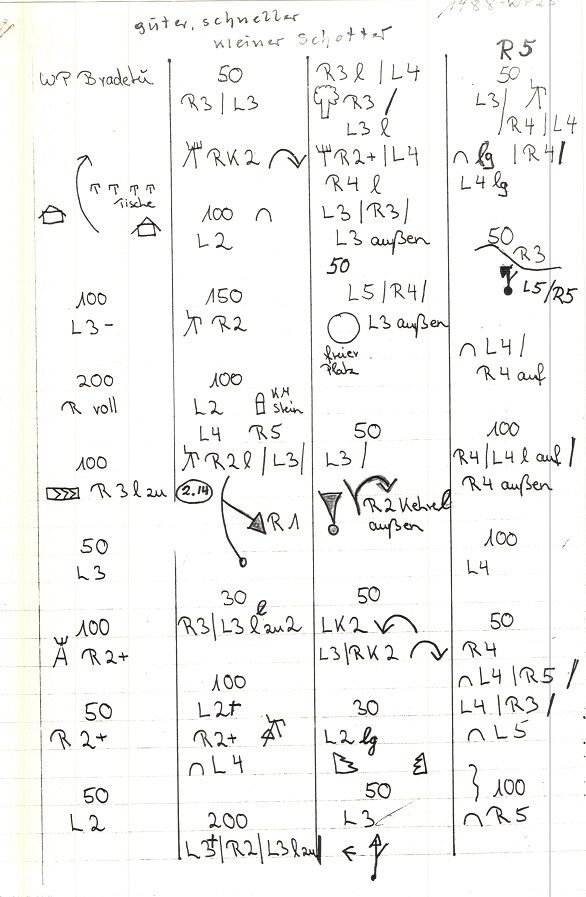 1988-WP23
guter, schneller
kleiner Schotter
WP Bradetú
Tische
100
L3-
200
R voll
100
R3 l zu
50
L3
100
R2+
50
R2+
50
L2
50
R3 | L3
RK2
100 ∩
L2
150
R2
100
L2 KM
Stein
L4 R5
R2 l | L3 |
2.14
R1
30
R3 | L3 l zu 2
100
L2+
R2+
∩ L4
200
L3+ | R2 | L3 l zu |
R3 l | L4
R3 /
L3 l
R2+ | L4
R4 l
L3 | R3 |
L3 außen
50
L5 / R4 /
L3 außen
freier
Platz
50
L3 /
R2 Kehre l
außen
50
LK2
L3 | RK2
30
L2 lg
50
L3
R5
50
L3 /
/ R4 | L4
∩ lg | R4 /
L4 lg
50
R3
L5 / R5
∩ L4 /
R4 auf
100
R4 | L4 l auf /
R4 außen
100
L4
50
R4
∩ L4 | R5 /
L4 | R3 /
∩ L5
100
∩ R5